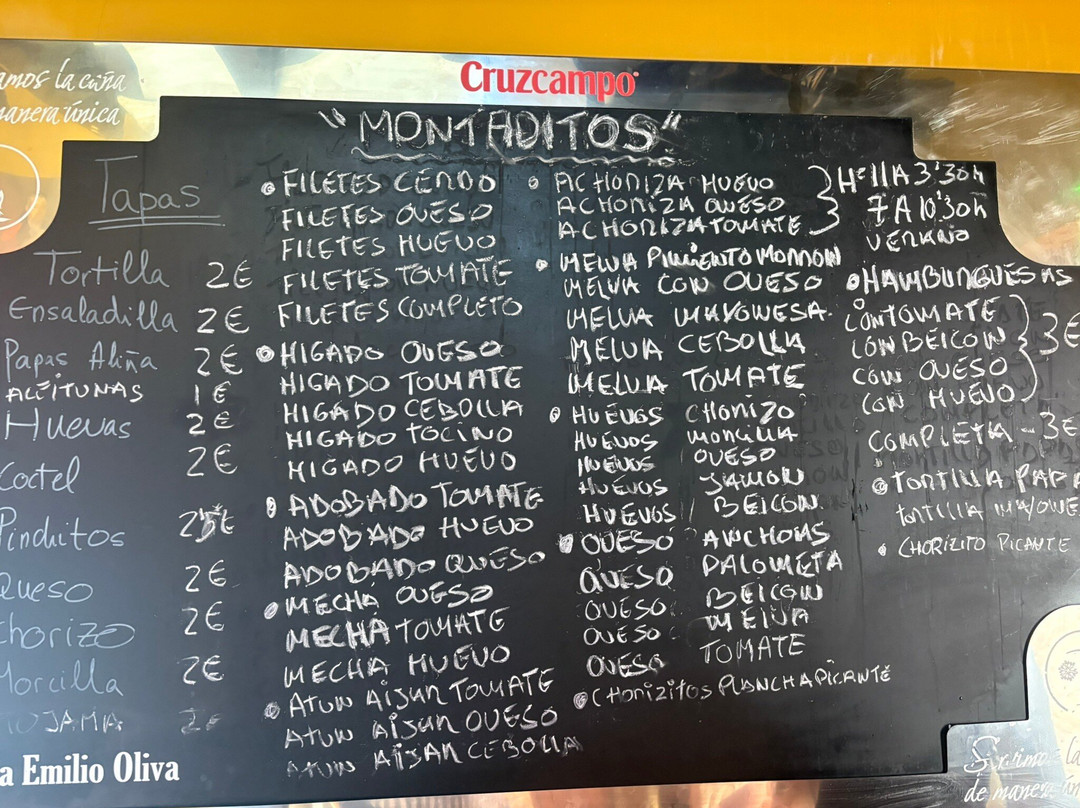 Cruzcampo
amos la caña
manera única
"MONTADITOS"
Tapas
Tortilla 2€
Ensaladilla 2€
Papas Aliña 2€
ACEITUNAS 1€
Huevas 2€
Coctel 2€
Pinchitos 2'5€
Queso 2€
Chorizo 2€
Morcilla 2€
MOJAMA 2€
FILETES CERDO
FILETES QUESO
FILETES HUEVO
FILETES TOMATE
FILETES COMPLETO
HIGADO QUESO
HIGADO TOMATE
HIGADO CEBOLLA
HIGADO TOCINO
HIGADO HUEVO
ADOBADO TOMATE
ADOBADO HUEVO
ADOBADO QUESO
MECHA QUESO
MECHA TOMATE
MECHA HUEVO
ATUN AIJAR TOMATE
ATUN AIJAR QUESO
ATUN AIJAR CEBOLLA
ACHORIZA HUEVO
ACHORIZA QUESO
ACHORIZA TOMATE
MELVA PIMIENTO MORRON
MELVA CON QUESO
MELVA MAYONESA
MELVA CEBOLLA
MELVA TOMATE
HUEVOS CHORIZO
HUEVOS MORCILLA
HUEVOS QUESO
HUEVOS JAMON
HUEVOS BEICON
QUESO ANCHOAS
QUESO PALOMETA
QUESO BEICON
QUESO MELVA
QUESO TOMATE
CHORIZITOS PLANCHA PICANTE
Hº 11 A 3'30h
7 A 10'30h
VERANO
HAMBURGUESAS
CON TOMATE
CON BEICON 3€
CON QUESO
CON HUEVO
COMPLETA - 3€
TORTILLA PAPA
TORTILLA MAYONE
CHORIZITO PICANTE
a Emilio Oliva
Servimos la
de manera ún